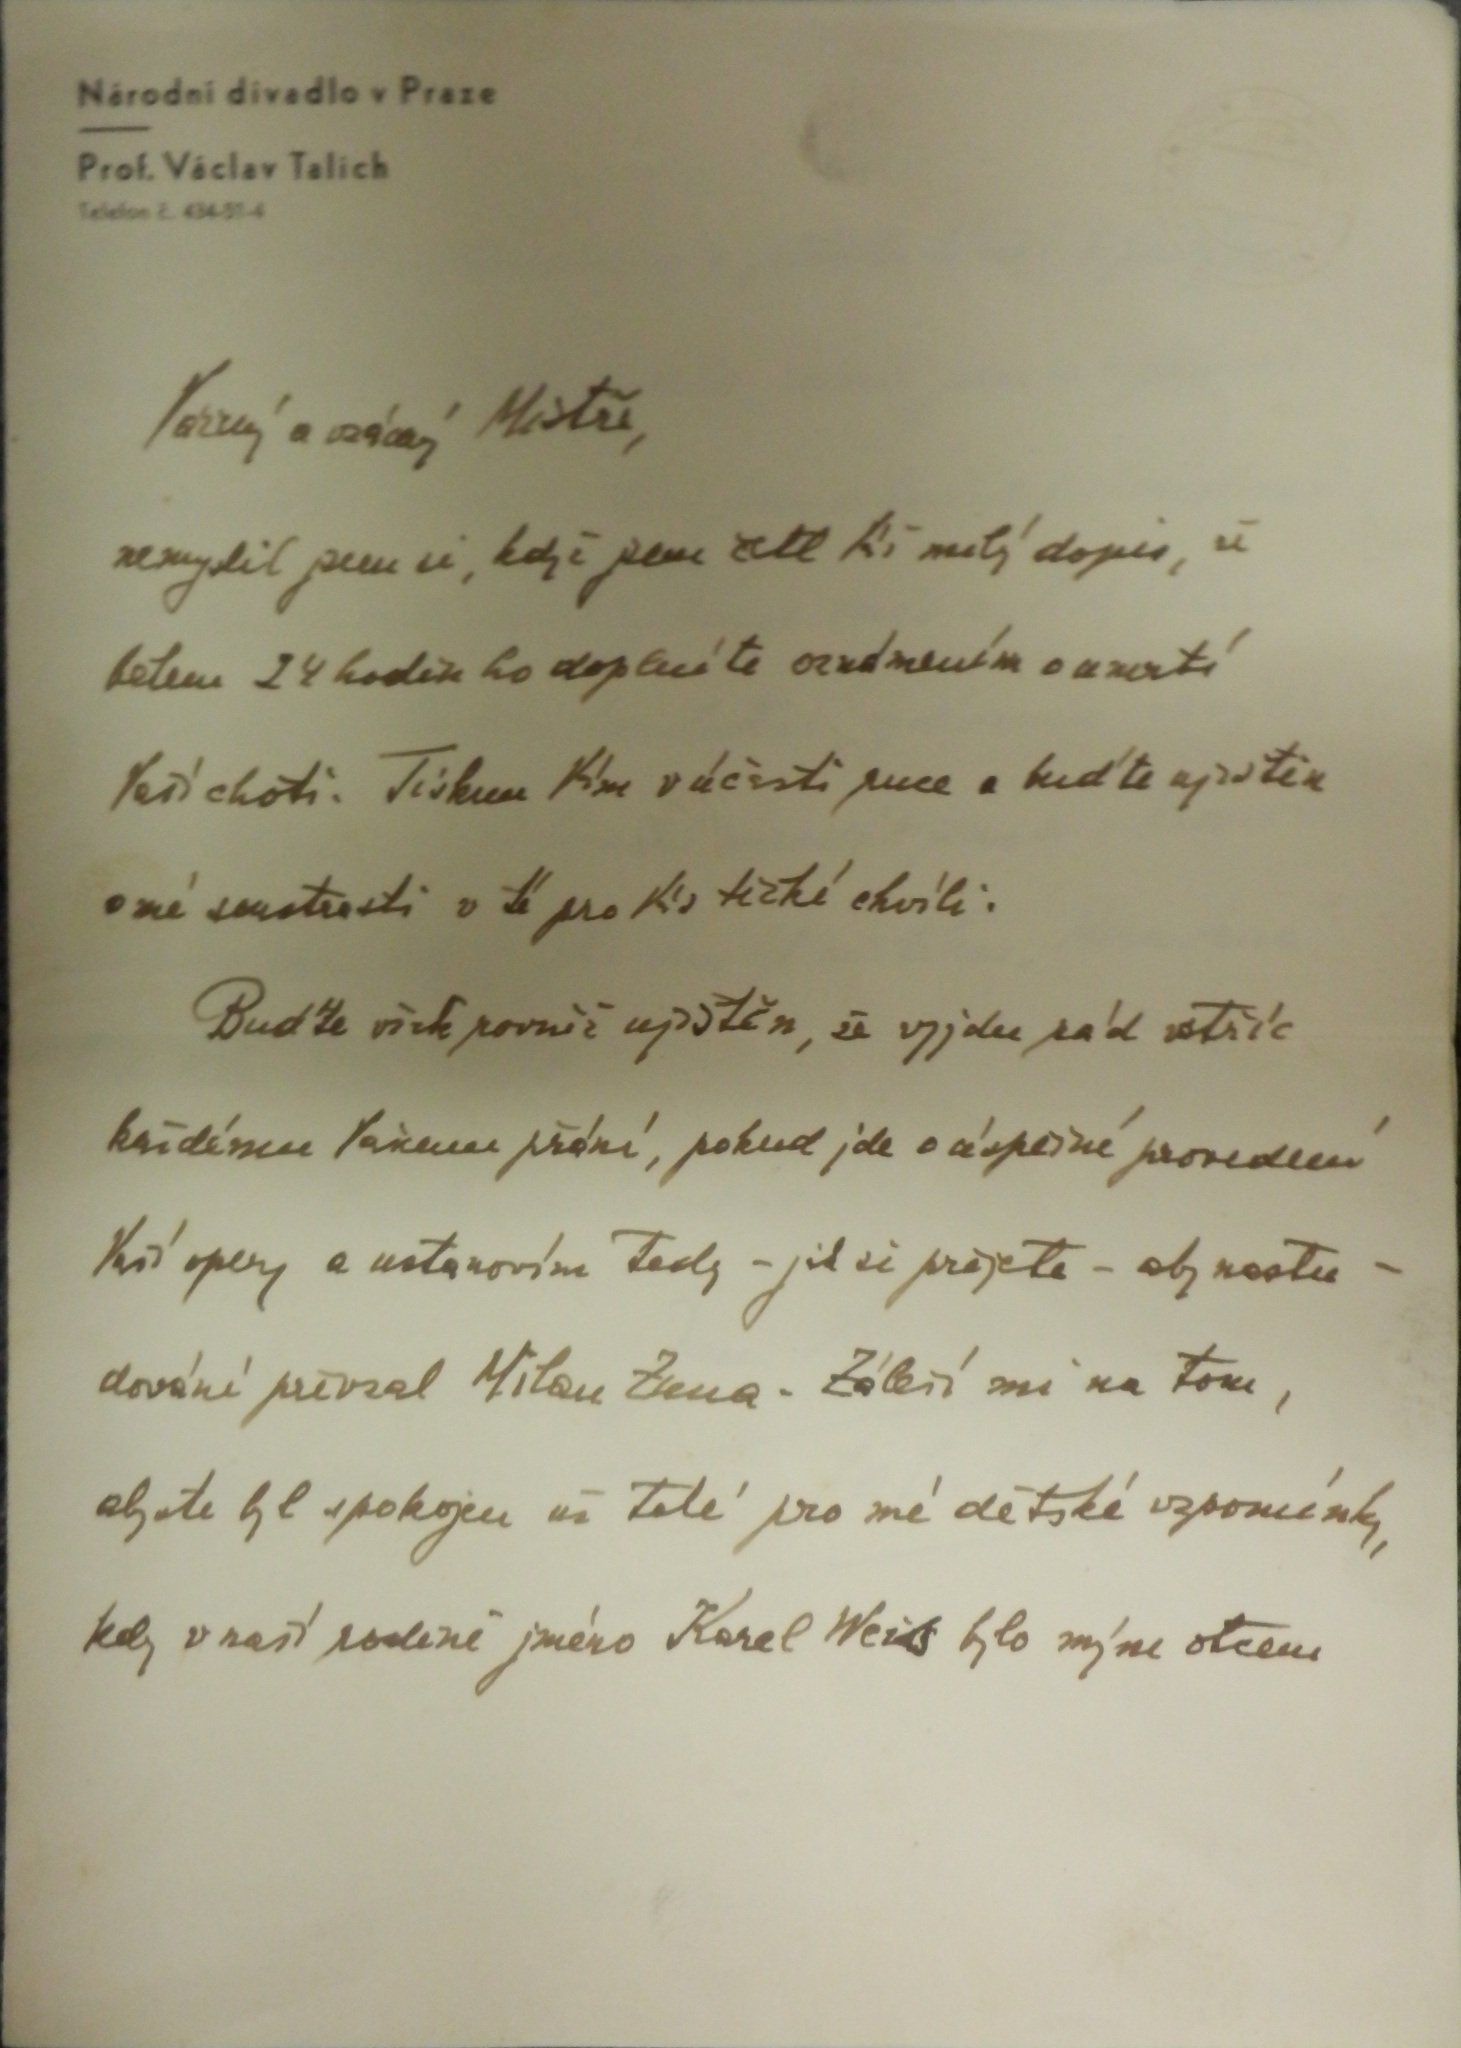 Národní divadlo v Praze
Prof. Václav Talich
Telefon č. 434-51-4
Vážený a vzácný Mistře,
nemyslil jsem si, když jsem četl Váš milý dopis, že
během 24 hodin ho doplníte oznámením o úmrtí
Vaší choti. Tisknu Vám v účasti ruce a buďte ujištěn
o mé soustrasti v té pro Vás těžké chvíli.
Buďte však rovněž ujištěn, že vyjdu rád vstříc
každému Vašemu přání, pokud jde o úspěšné provedení
Vaší opery a ustanovím tedy - jak si přejete - aby nastu-
dování převzal Milan Zuna. Záleží mi na tom,
abyste byl spokojen už také pro mé dětské vzpomínky,
kdy v naší rodině jméno Karel Weis bylo mým otcem